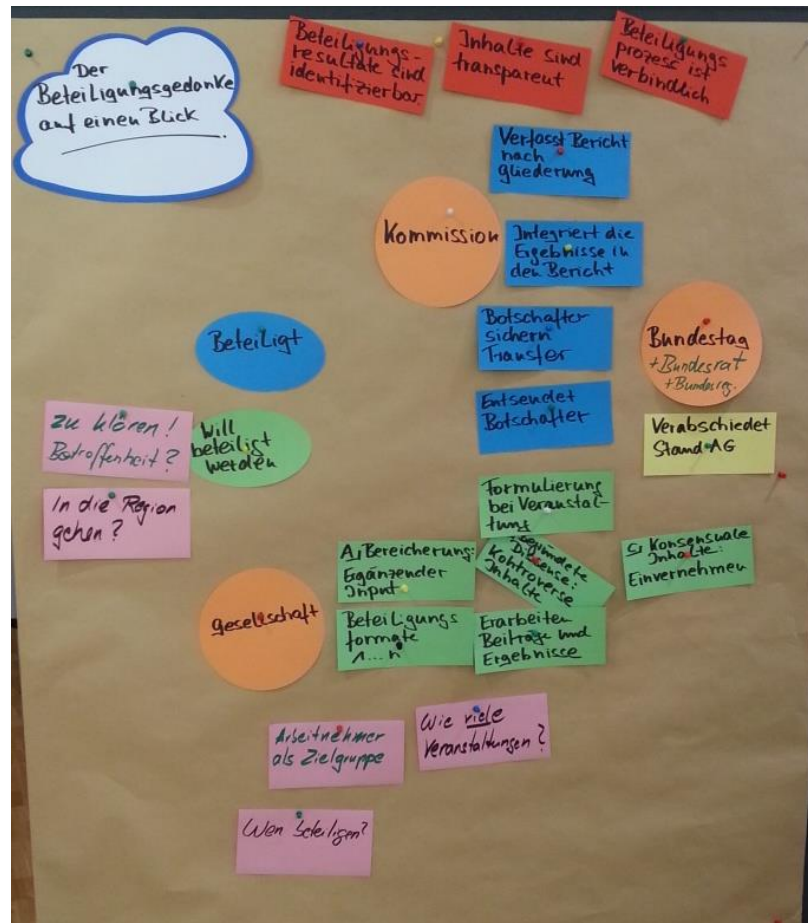 Der
Beteiligungsgedanke
auf einen Blick
Beteiligungs-
resultate sind
identifizierbar
Inhalte sind
transparent
Beteiligungs
prozess ist
verbindlich
Verfasst Bericht
nach
Gliederung
Kommission
Integriert die
Ergebnisse in
den Bericht
Beteiligt
Botschafter
sichern
Transfer
Bundestag
+Bundesrat
+Bundesreg.
Entsendet
Botschafter
Verabschiedet
Stand AG
zu klären!
Betroffenheit?
Will
beteiligt
werden
In die Region
gehen?
Formulierung
bei Veranstal-
tung
A, Bereicherung:
Ergänzender
Input
Begründete
Dissense:
Kontroverse
Inhalte
C, Konsensuale
Inhalte:
Einvernehmen
Gesellschaft
Beteiligungs
formate
1...n
Erarbeiten
Beiträge und
Ergebnisse
Arbeitnehmer
als Zielgruppe
Wie viele
Veranstaltungen?
Wen beteiligen?